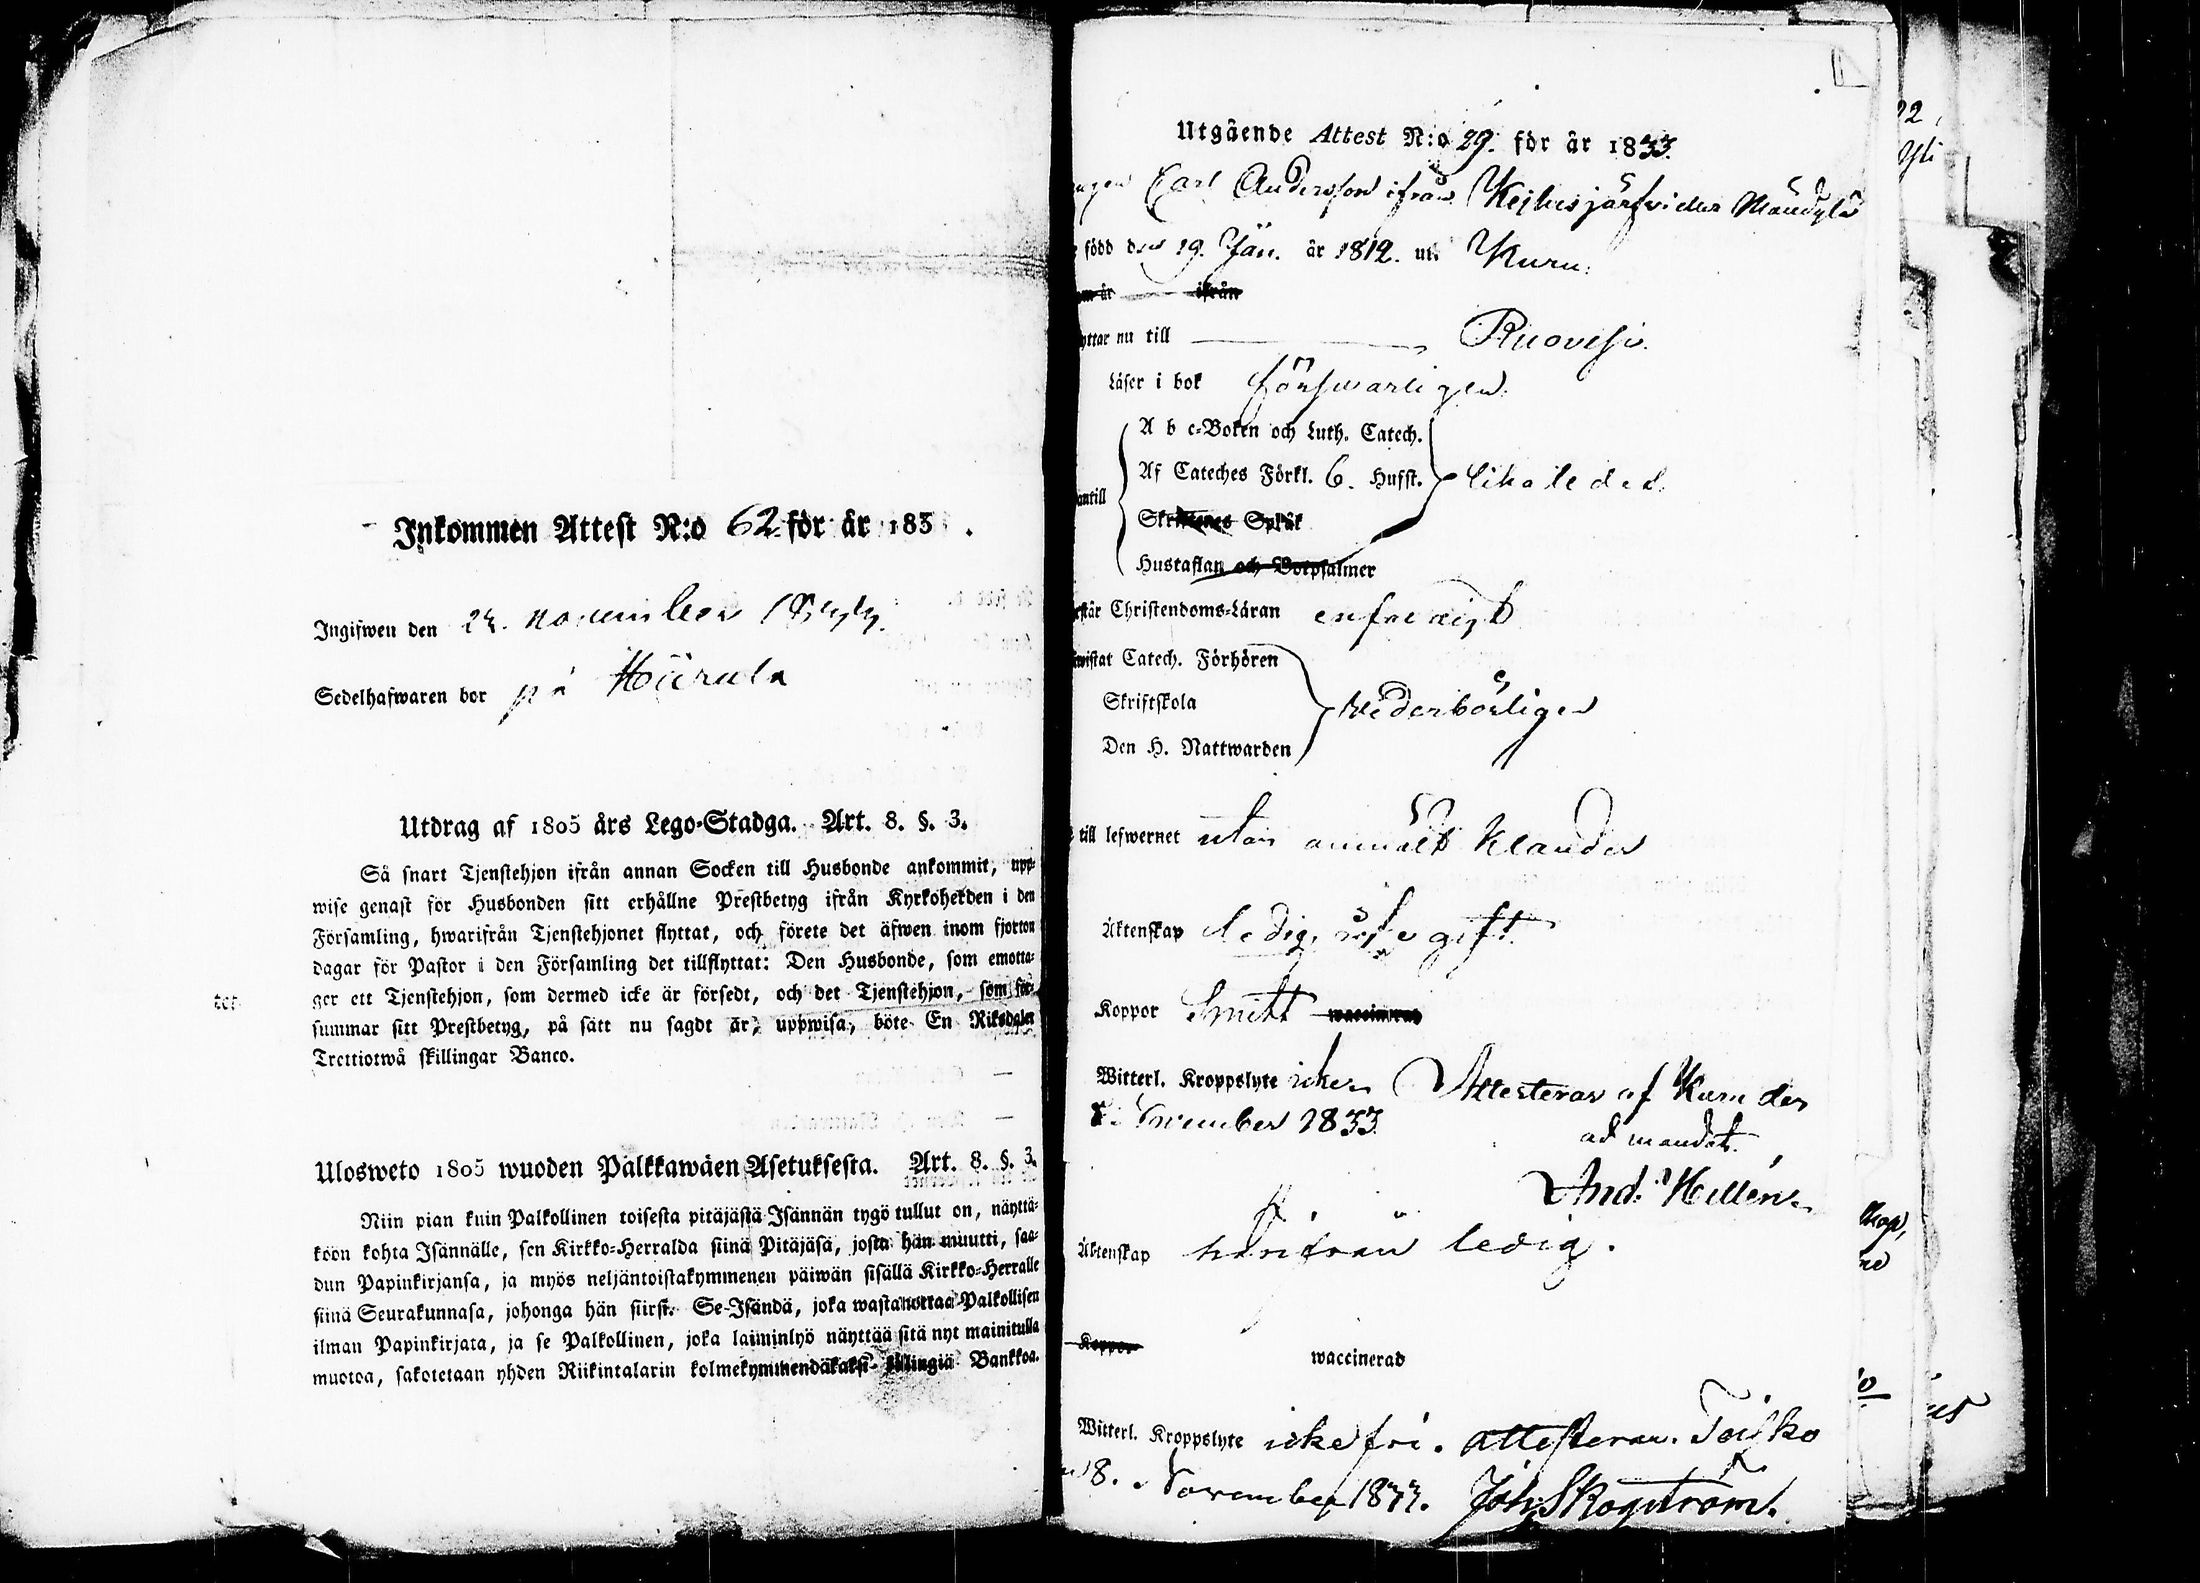 Inkommen Attest N:o 62 för år 183 .
Ingifwen den 24. november
Sedelhafwaren bor på
Utdrag af 1805 års Lego-Stadga. Art. 8. §. 3.
Så snart Tjenstehjon ifrån annan Socken till Husbonde ankommit, upp-
wise genast för Husbonden sitt erhållne Prestbetyg ifrån Kyrkoherden i den
Församling, hwarifrån Tjenstehjonet flyttat, och förete det äfwen inom fjorton
dagar för Pastor i den Församling det tillflyttat: Den Husbonde, som emotta-
ger ett Tjenstehjon, som dermed icke är försedt, och det Tjenstehjon, som för-
summar sitt Prestbetyg, på sätt nu sagdt är, uppwisa, böte En Riksdaler
Trettiotwå skillingar Banco.
Ulosweto 1805 wuoden Palkkawäen Asetuksesta. Art. 8. §. 3.
Niin pian kuin Palkollinen toisesta pitäjästä Isännän tygö tullut on, näyttä-
köön kohta Isännälle, sen Kirkko-Herralda siinä Pitäjäsä, josta hän muutti, saa-
dun Papinkirjansa, ja myös neljäntoistakymmenen päiwän sisällä Kirkko-Herralle
siinä Seurakunnasa, johonga hän siirst. Se Isändä, joka wastanottaa Palkollisen
ilman Papinkirjata, ja se Palkollinen, joka laiminlyö näyttää sitä nyt mainitulla
muotoa, sakotetaan yhden Riikintalarin kolmekymmendäkaksi killingiä Bankkoa.
Utgående Attest N:o 29. för år 1833.
Carl Andersson ifrån
född den 19. Jan. år 1812. uti Kuru.
år ifrån
yttar nu till Ruovesi.
Läser i bok förswarligen
A b c-Boken och Luth. Catech.
Af Cateches Förkl. 6. Hufst. likaledes
antill
Skriftenes Språk
Hustaflan och Botpsalmer
står Christendoms-Läran enfaldigt
wistat Catech. Förhören
Skriftskola wederbörligen
Den H. Nattwarden
till lefwernet utan anmält klander
Äktenskap ledig, gift.
Koppor waccinerad
Witterl. Kroppslyte icke. Attesteras af Kuru den
November 1833. ad mandat.
And. Hellén
Äktenskap härifrån ledig.
Koppor
waccinerad
Witterl. Kroppslyte icke fri. attesteras. Toisko
8. November 1833. Joh. Skogström.